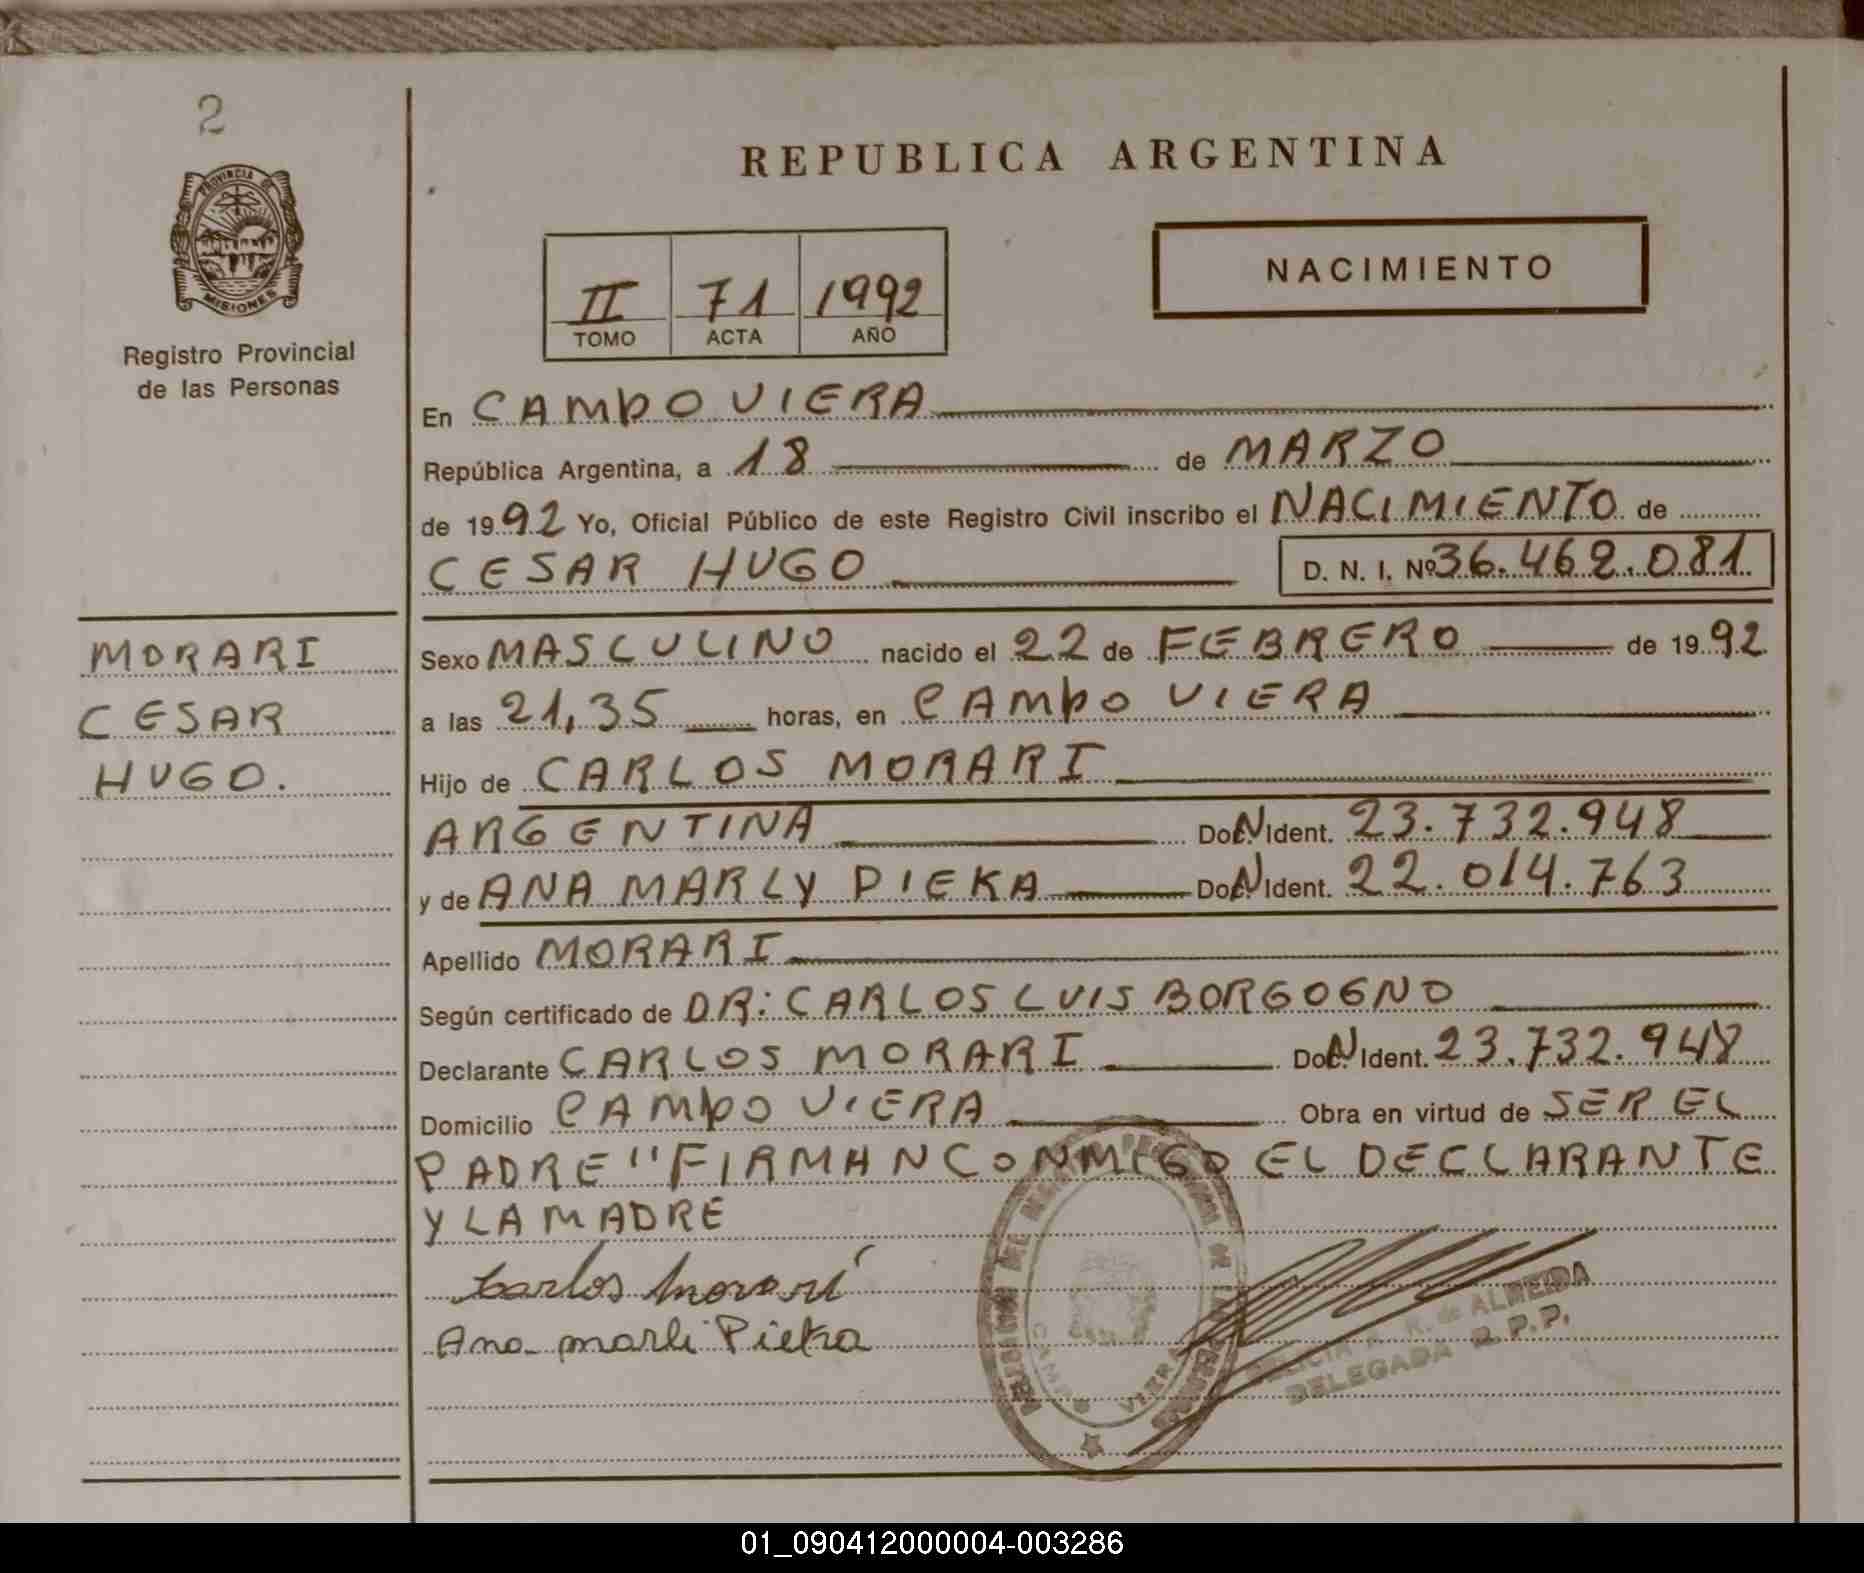 2
PROVINCIA DE
MISIONES
Registro Provincial
de las Personas
REPUBLICA ARGENTINA
II 71 1992
TOMO ACTA AÑO
NACIMIENTO
En CAMPO VIERA
República Argentina, a 18 de MARZO
de 1992 Yo, Oficial Público de este Registro Civil inscribo el NACIMIENTO de
CESAR HUGO D. N. I. Nº 36.462.081
MORARI
CESAR
HUGO.
Sexo MASCULINO nacido el 22 de FEBRERO de 1992
a las 21,35 horas, en CAMPO VIERA
Hijo de CARLOS MORARI
ARGENTINA Doc. N Ident. 23.732.948
y de ANA MARLY PIEKA Doc. N Ident. 22.014.763
Apellido MORARI
Según certificado de DR: CARLOS LUIS BORGOGNO
Declarante CARLOS MORARI Doc. N Ident. 23.732.948
Domicilio CAMPO VIERA Obra en virtud de SER EL
PADRE "FIRMAN CONMIGO EL DECLARANTE
Y LA MADRE
Carlos Morari
Ana marli Pieka
CAMPO VIERA
R. de ALMEIDA
DELEGADA R.P.P.
01_090412000004-003286